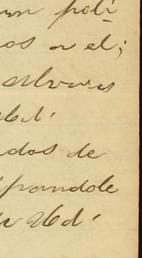 un poli-
os a el;
Alvares
Ud.
dos de
pandole
Ud.